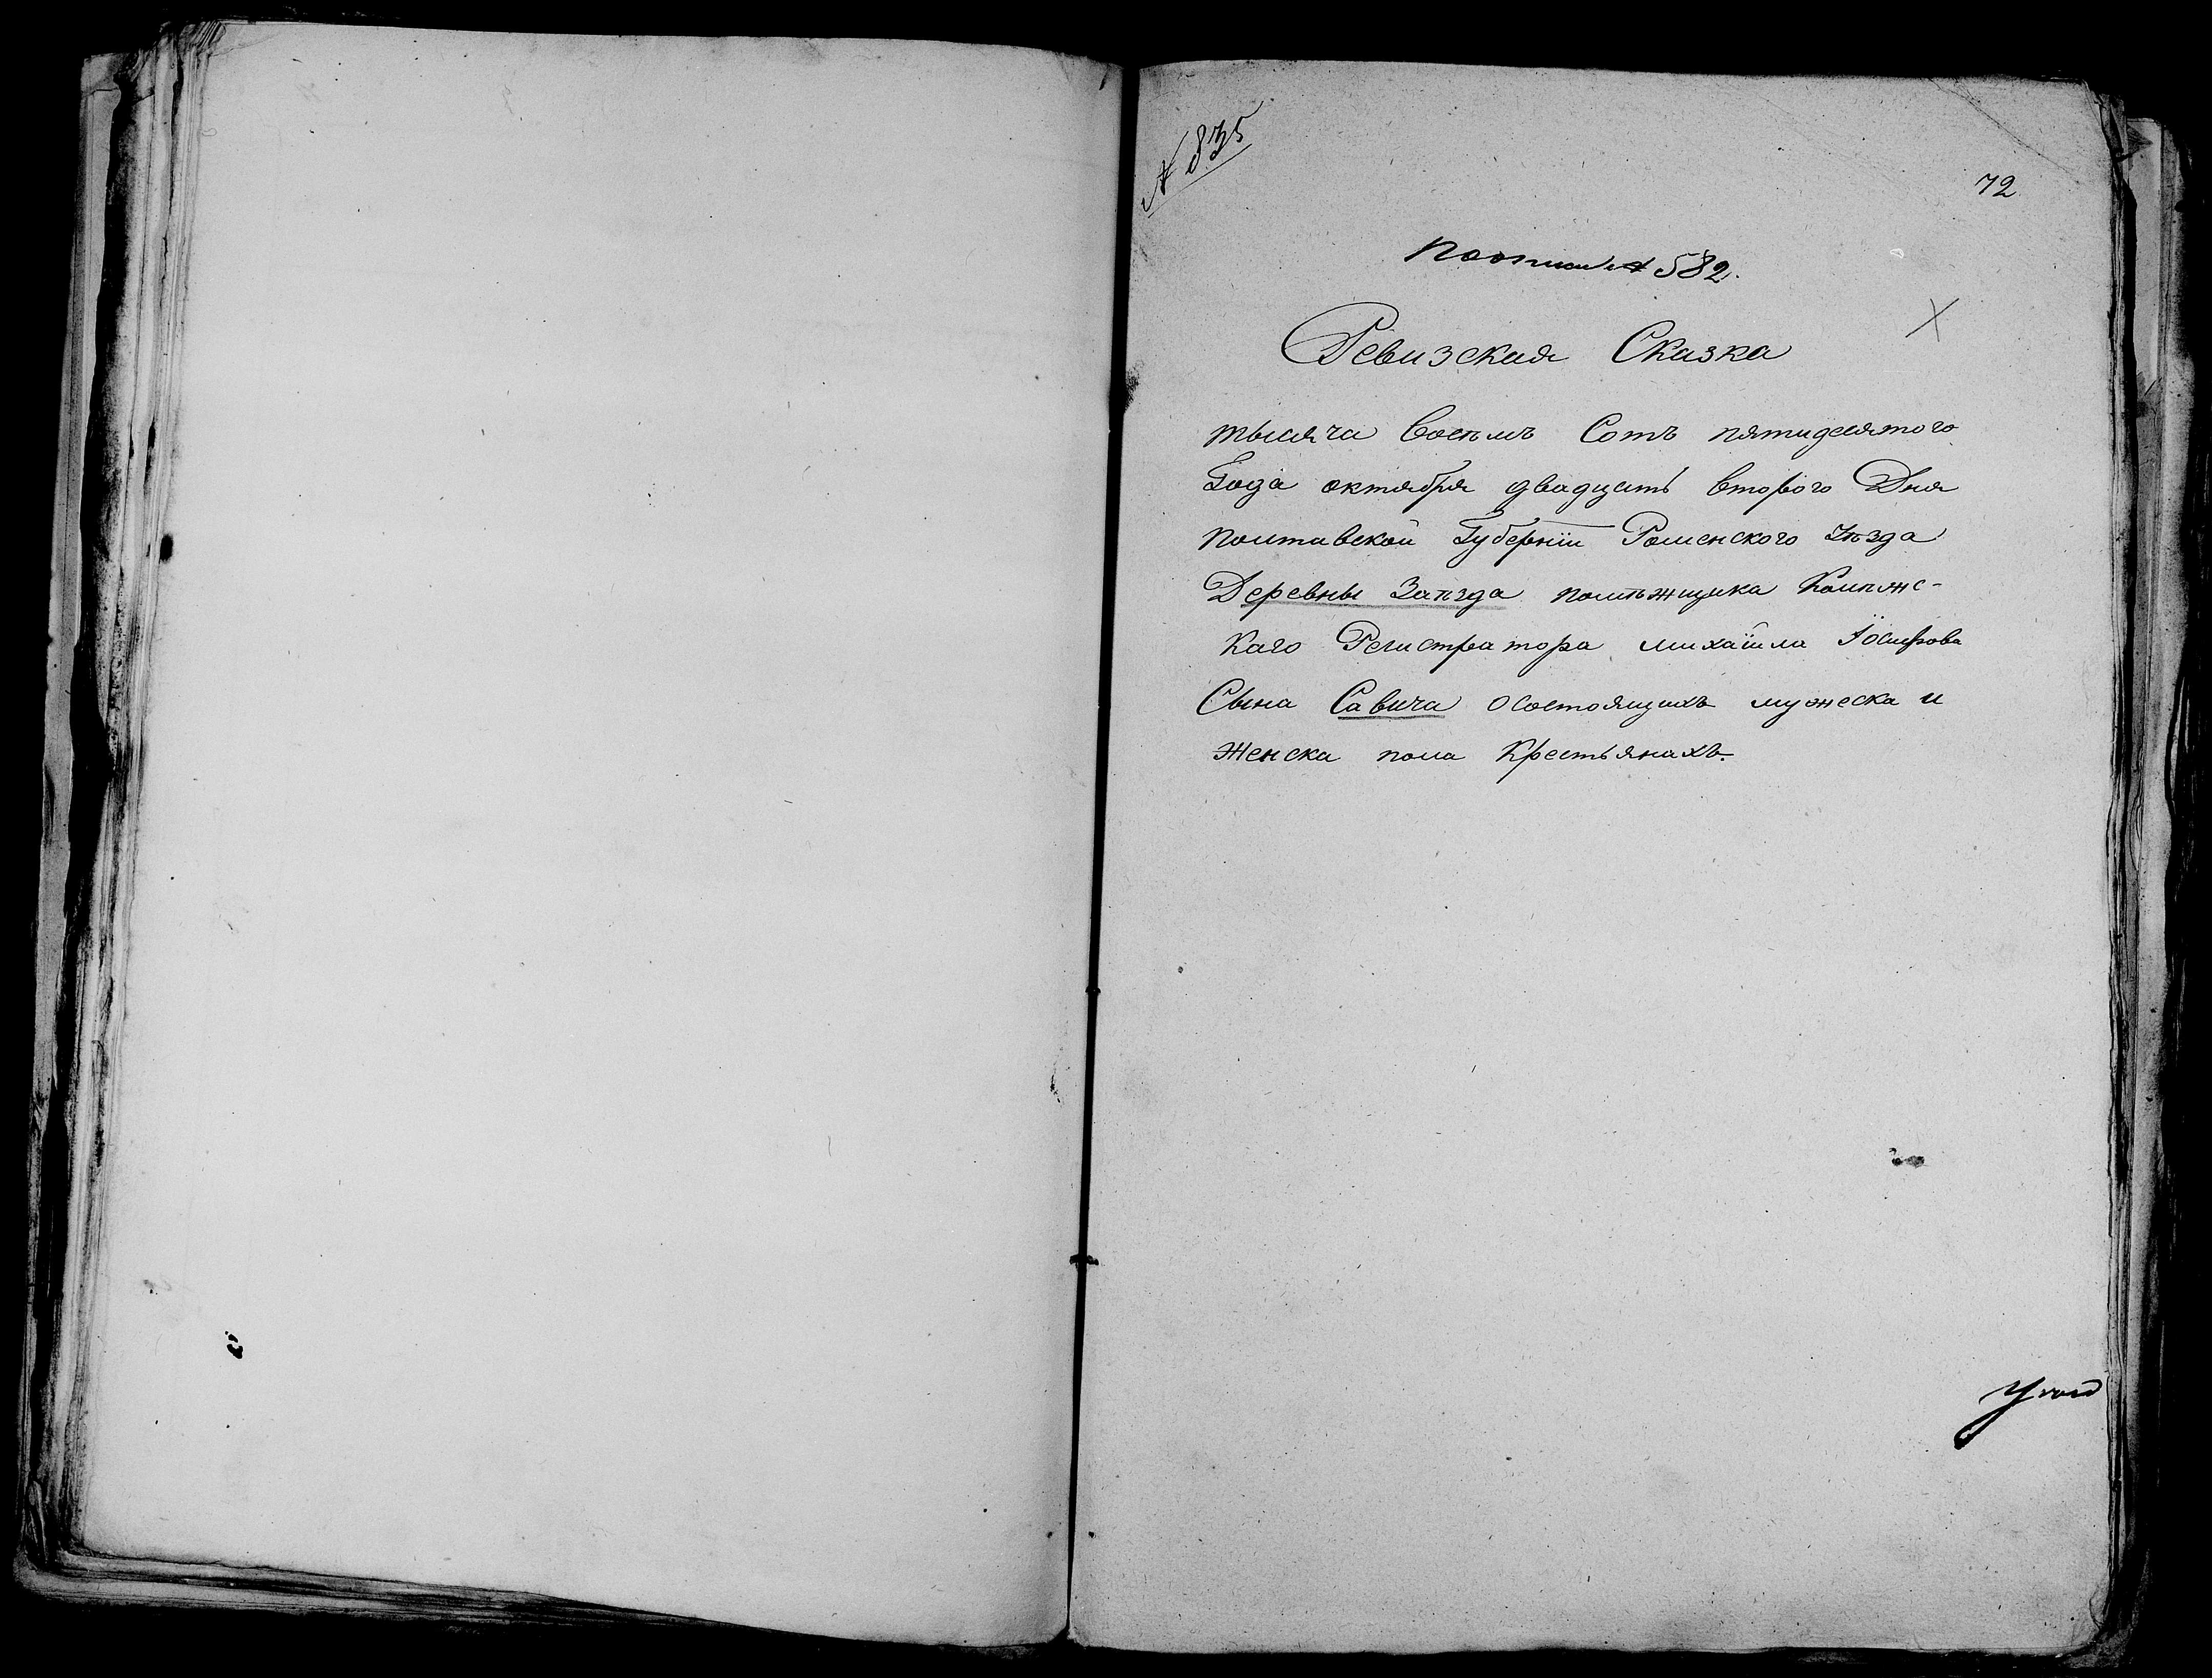 № 835
72
По описи № 582.
Ревизская Сказка
тысяча восемь Сотъ пятидесятого
Года октября двадцать второго Дня
полтавской Губернiи Роменского уѣзда
Деревны Заѣзда помѣжщика Колѣжс-
каго Регистратора михаила Iосифова
Сына Савича осостоящихъ мужеска и
Женска пола Крестьянахъ.